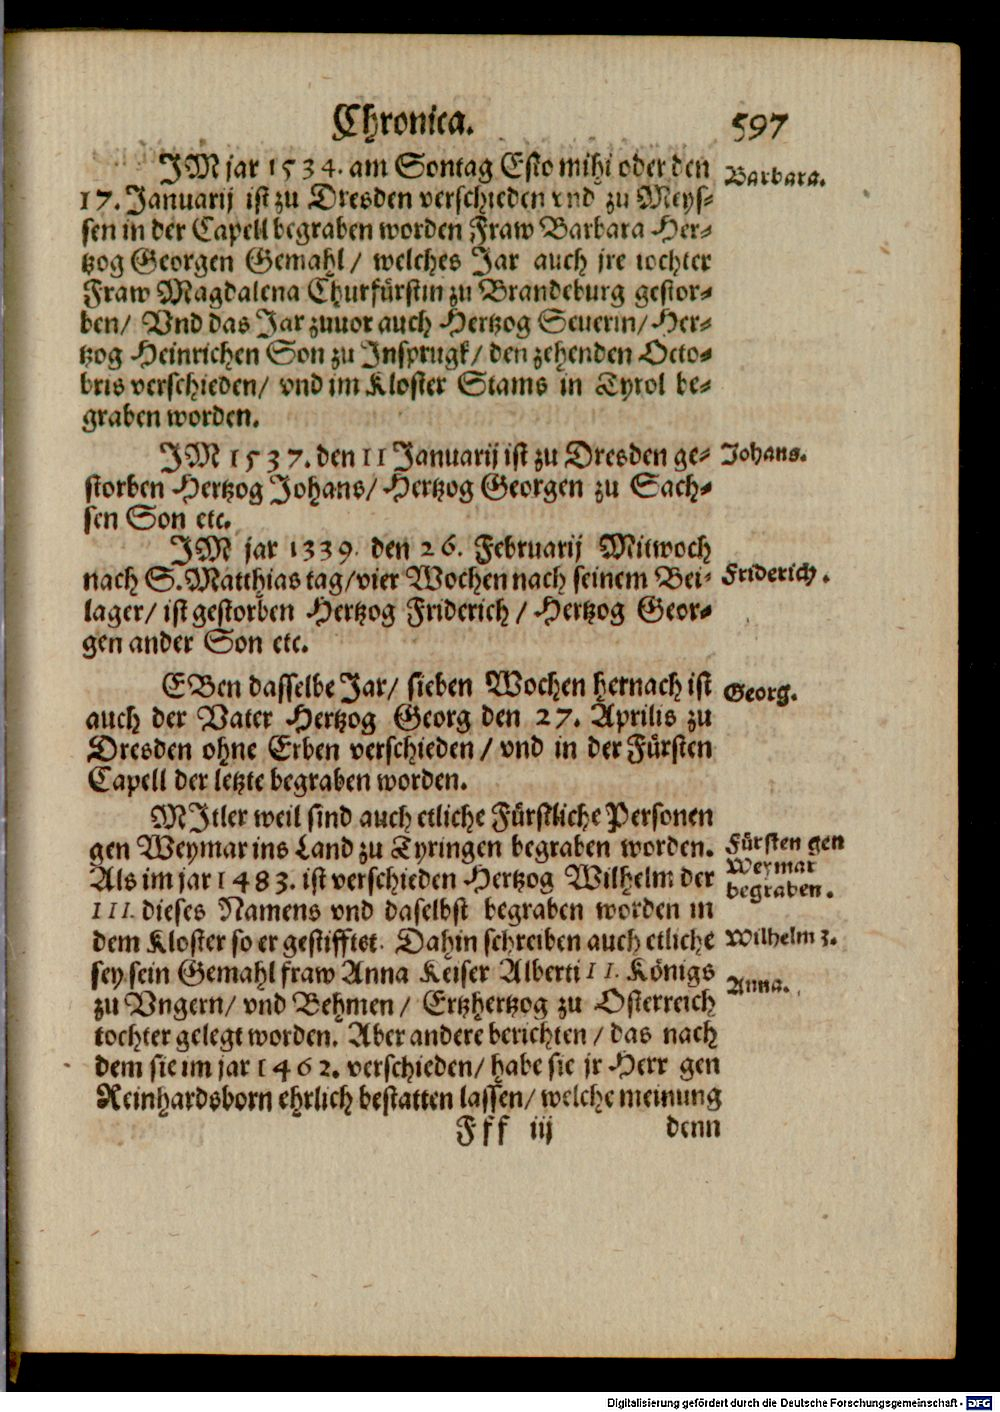 Chronica. 597
JM jar 1534. am Sontag Esto mihi oder den Barbara.
17. Januarij ist zu Dresden verschieden vnd zu Meys-
sen in der Capell begraben worden Fraw Barbara Her-
tzog Georgen Gemahl / welches Jar auch jre tochter
Fraw Magdalena Churfürstin zu Brandeburg gestor-
ben / Vnd das Jar zuuor auch Hertzog Seuerin / Her-
tzog Heinrichen Son zu Insprugk / den zehenden Octo-
bris verschieden / vnd im Kloster Stams in Tyrol be-
graben worden.
JM 1537. den 11 Januarij ist zu Dresden ge- Johans.
storben Hertzog Johans / Hertzog Georgen zu Sach-
sen Son etc.
JM jar 1339. den 26. Februarij Mitwoch
nach S. Matthias tag / vier Wochen nach seinem Bei- Friderich.
lager / ist gestorben Hertzog Friderich / Hertzog Geor-
gen ander Son etc.
EBen dasselbe Jar / sieben Wochen hernach ist Georg.
auch der Vater Hertzog Georg den 27. Aprilis zu
Dresden ohne Erben verschieden / vnd in der Fürsten
Capell der letzte begraben worden.
MJtler weil sind auch etliche Fürstliche Personen
gen Weymar ins Land zu Tyringen begraben worden. Fürsten gen
Als im jar 1483. ist verschieden Hertzog Wilhelm der Weymar begraben.
III. dieses Namens vnd daselbst begraben worden in
dem Kloster so er gestifftet. Dahin schreiben auch etliche Wilhelm 3.
sey sein Gemahl fraw Anna Keiser Alberti II. Königs Anna.
zu Vngern / vnd Behmen / Ertzhertzog zu Osterreich
tochter gelegt worden. Aber andere berichten / das nach
dem sie im jar 1462. verschieden / habe sie jr Herr gen
Reinhardsborn ehrlich bestatten lassen / welche meinung
Fff iij denn
Digitalisierung gefördert durch die Deutsche Forschungsgemeinschaft - DFG